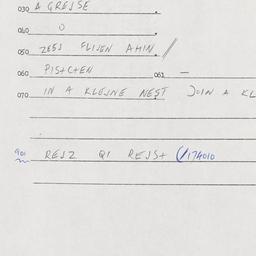 030 A GREJSE
040 O
050 ZEES FLIJEN AHIN //
060 PISHCHEN 061 —
070 IN A KLEJNE NEST JOIN A KL
901 REJZ QI REJSH (/174010